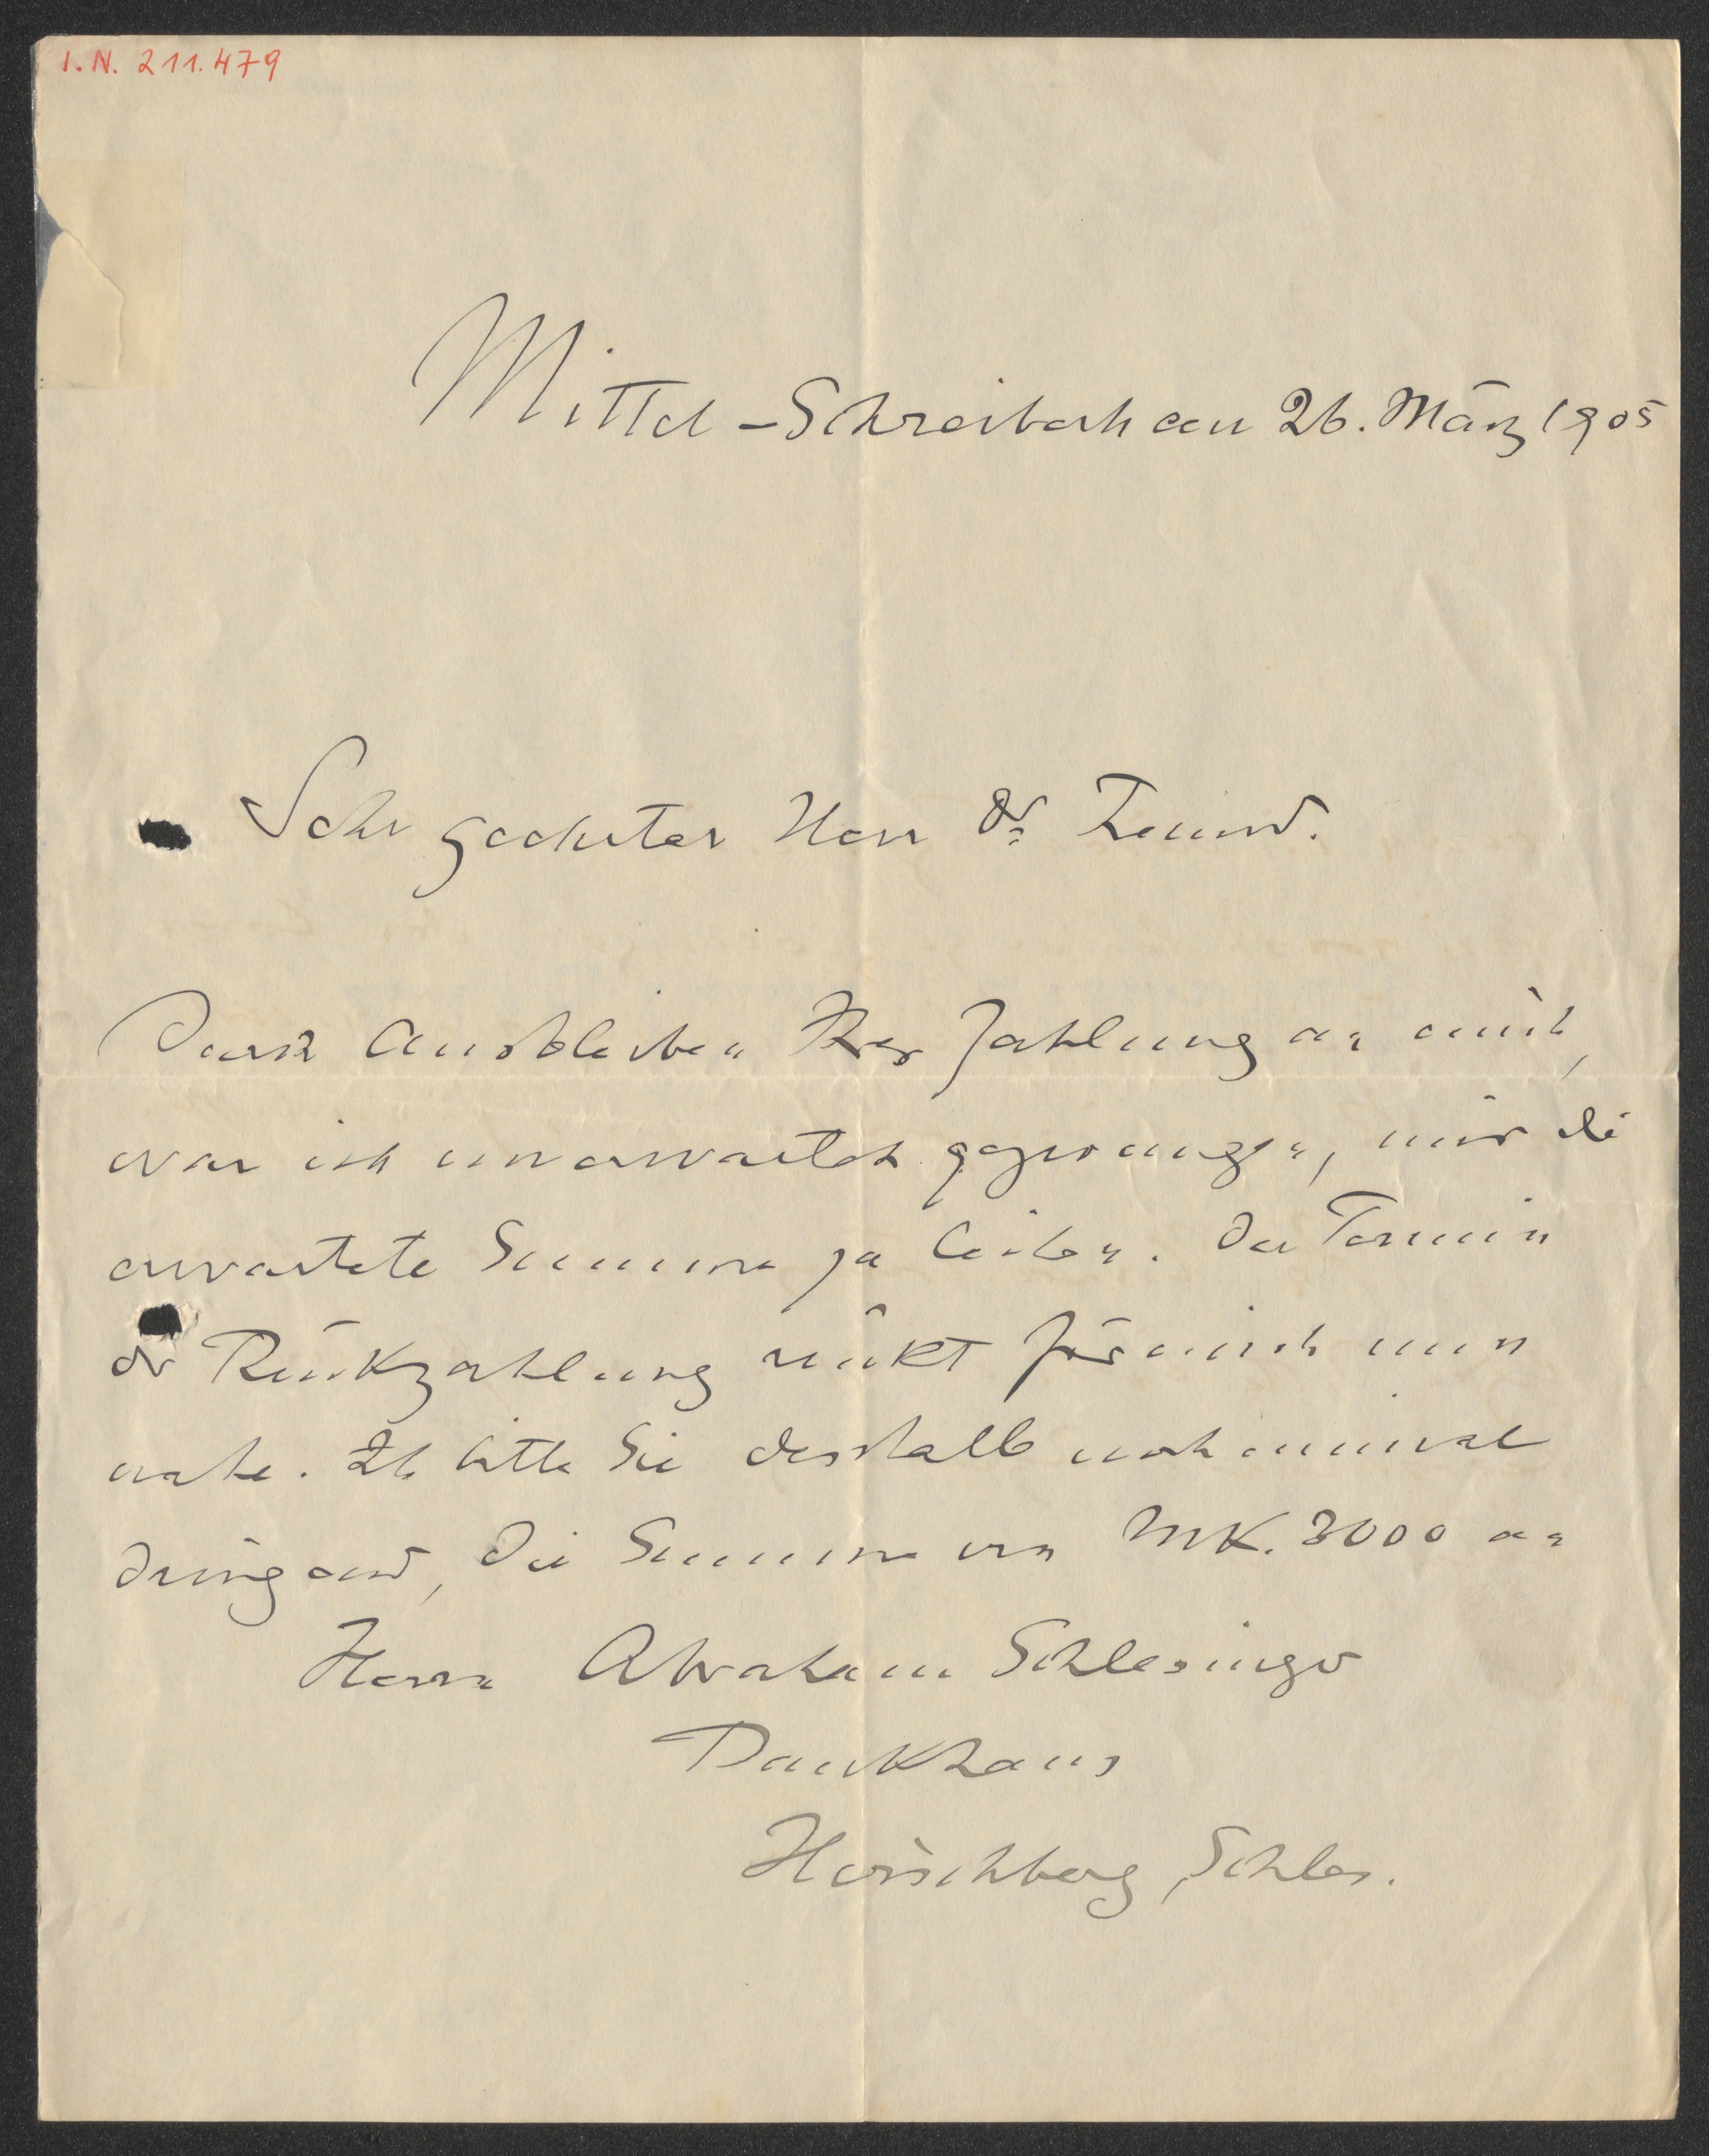 I. N. 211.479
Mittel-Schreiberhau 26. März 1905
Sehr geehrter Herr Dr
Durch Ausbleiben Ihrer Zahlung an mich,
war ich unerwartet gezwungen, mir die
erwartete Summe zu leihen. Der Termin
der Rückzahlung rückt für mich nun
nahe. Ich bitte Sie deshalb noch einmal
dringend, die Summe von MK. 3000 an
Herrn Abraham Schlesinger
Bankhaus
Hirschberg, Schles.